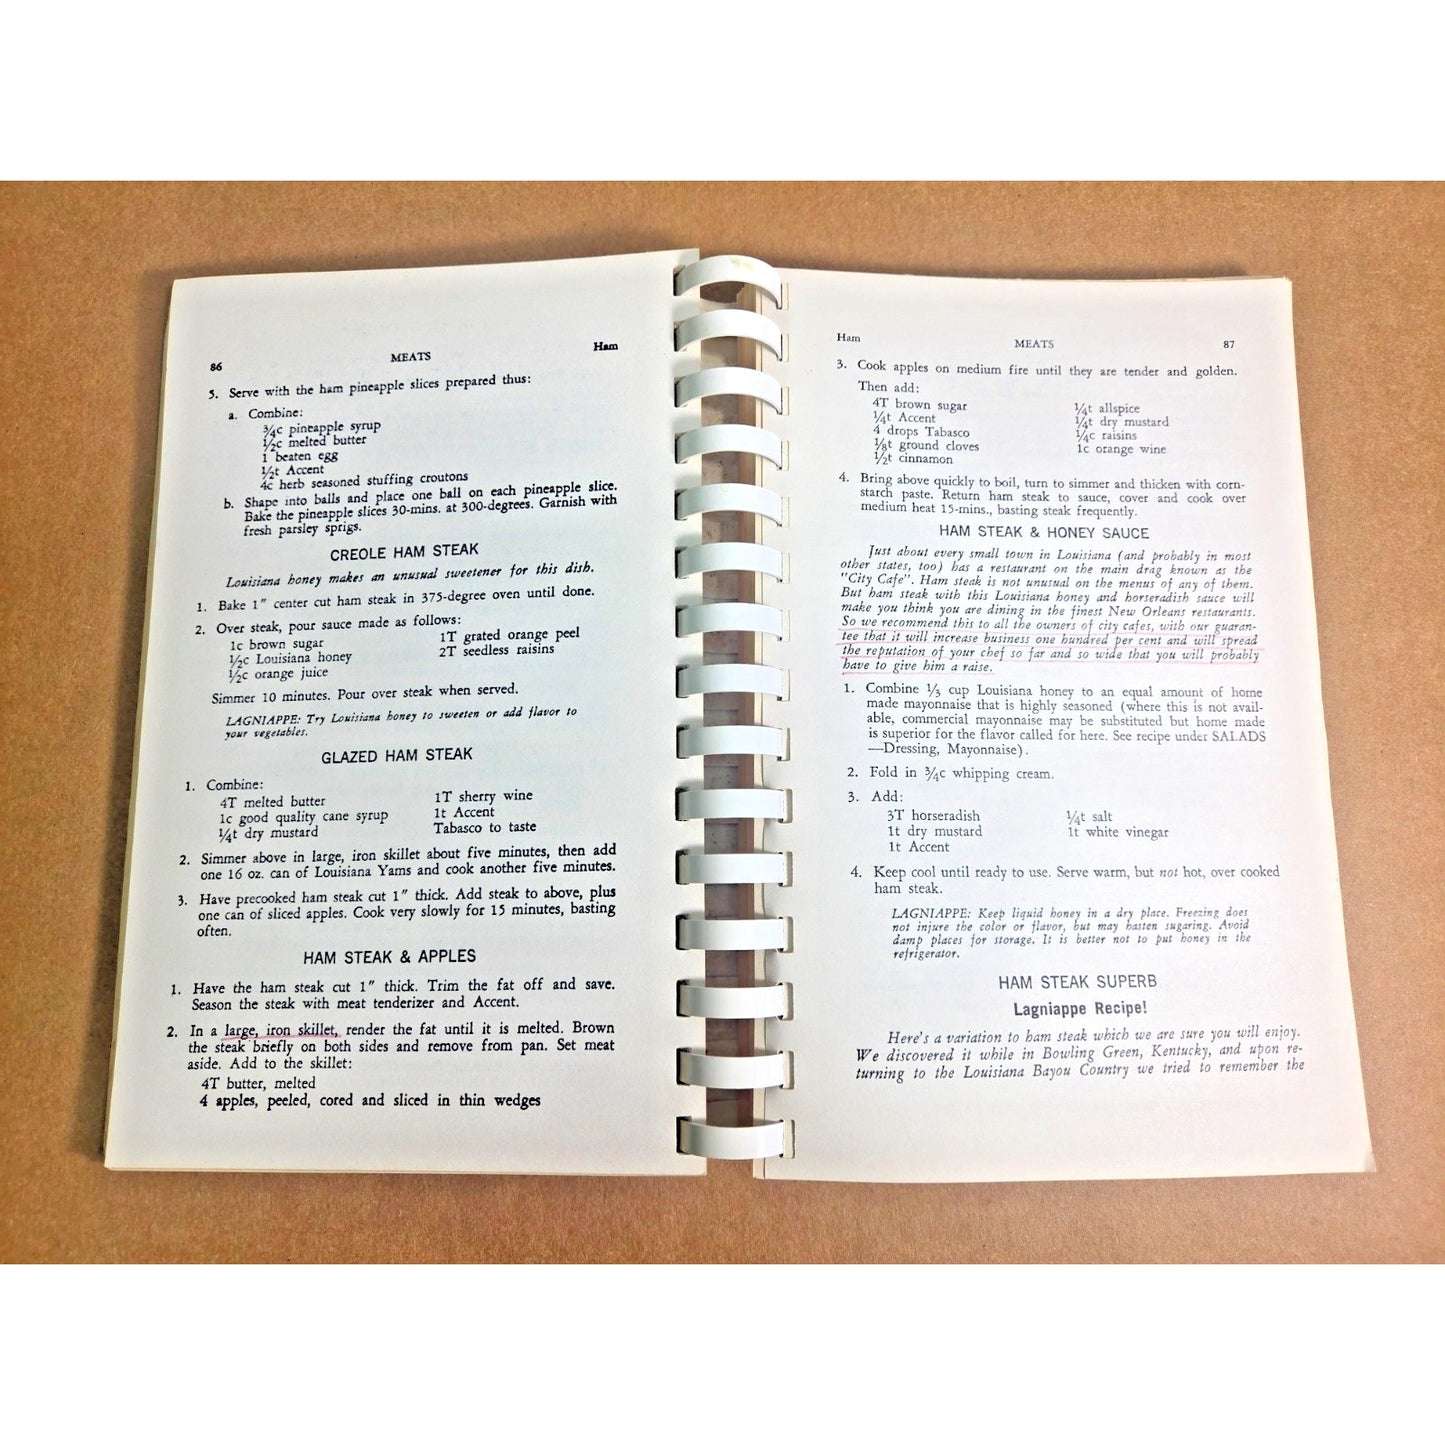 86 MEATS Ham
5. Serve with the ham pineapple slices prepared thus:
a. Combine:
¾c pineapple syrup
½c melted butter
1 beaten egg
½t Accent
4c herb seasoned stuffing croutons
b. Shape into balls and place one ball on each pineapple slice.
Bake the pineapple slices 30-mins. at 300-degrees. Garnish with
fresh parsley sprigs.
CREOLE HAM STEAK
Louisiana honey makes an unusual sweetener for this dish.
1. Bake 1" center cut ham steak in 375-degree oven until done.
2. Over steak, pour sauce made as follows:
1c brown sugar 1T grated orange peel
½c Louisiana honey 2T seedless raisins
½c orange juice
Simmer 10 minutes. Pour over steak when served.
LAGNIAPPE: Try Louisiana honey to sweeten or add flavor to
your vegetables.
GLAZED HAM STEAK
1. Combine:
4T melted butter 1T sherry wine
1c good quality cane syrup 1t Accent
¼t dry mustard Tabasco to taste
2. Simmer above in large, iron skillet about five minutes, then add
one 16 oz. can of Louisiana Yams and cook another five minutes.
3. Have precooked ham steak cut 1" thick. Add steak to above, plus
one can of sliced apples. Cook very slowly for 15 minutes, basting
often.
HAM STEAK & APPLES
1. Have the ham steak cut 1" thick. Trim the fat off and save.
Season the steak with meat tenderizer and Accent.
2. In a large, iron skillet, render the fat until it is melted. Brown
the steak briefly on both sides and remove from pan. Set meat
aside. Add to the skillet:
4T butter, melted
4 apples, peeled, cored and sliced in thin wedges
Ham MEATS 87
3. Cook apples on medium fire until they are tender and golden.
Then add:
4T brown sugar ¼t allspice
¼t Accent ¼t dry mustard
4 drops Tabasco ¼c raisins
⅛t ground cloves 1c orange wine
½t cinnamon
4. Bring above quickly to boil, turn to simmer and thicken with corn-
starch paste. Return ham steak to sauce, cover and cook over
medium heat 15-mins., basting steak frequently.
HAM STEAK & HONEY SAUCE
Just about every small town in Louisiana (and probably in most
other states, too) has a restaurant on the main drag known as the
"City Cafe". Ham steak is not unusual on the menus of any of them.
But ham steak with this Louisiana honey and horseradish sauce will
make you think you are dining in the finest New Orleans restaurants.
So we recommend this to all the owners of city cafes, with our guaran-
tee that it will increase business one hundred per cent and will spread
the reputation of your chef so far and so wide that you will probably
have to give him a raise.
1. Combine ⅓ cup Louisiana honey to an equal amount of home
made mayonnaise that is highly seasoned (where this is not avail-
able, commercial mayonnaise may be substituted but home made
is superior for the flavor called for here. See recipe under SALADS
—Dressing, Mayonnaise).
2. Fold in ¾c whipping cream.
3. Add:
3T horseradish ¼t salt
1t dry mustard 1t white vinegar
1t Accent
4. Keep cool until ready to use. Serve warm, but not hot, over cooked
ham steak.
LAGNIAPPE: Keep liquid honey in a dry place. Freezing does
not injure the color or flavor, but may hasten sugaring. Avoid
damp places for storage. It is better not to put honey in the
refrigerator.
HAM STEAK SUPERB
Lagniappe Recipe!
Here's a variation to ham steak which we are sure you will enjoy.
We discovered it while in Bowling Green, Kentucky, and upon re-
turning to the Louisiana Bayou Country we tried to remember the